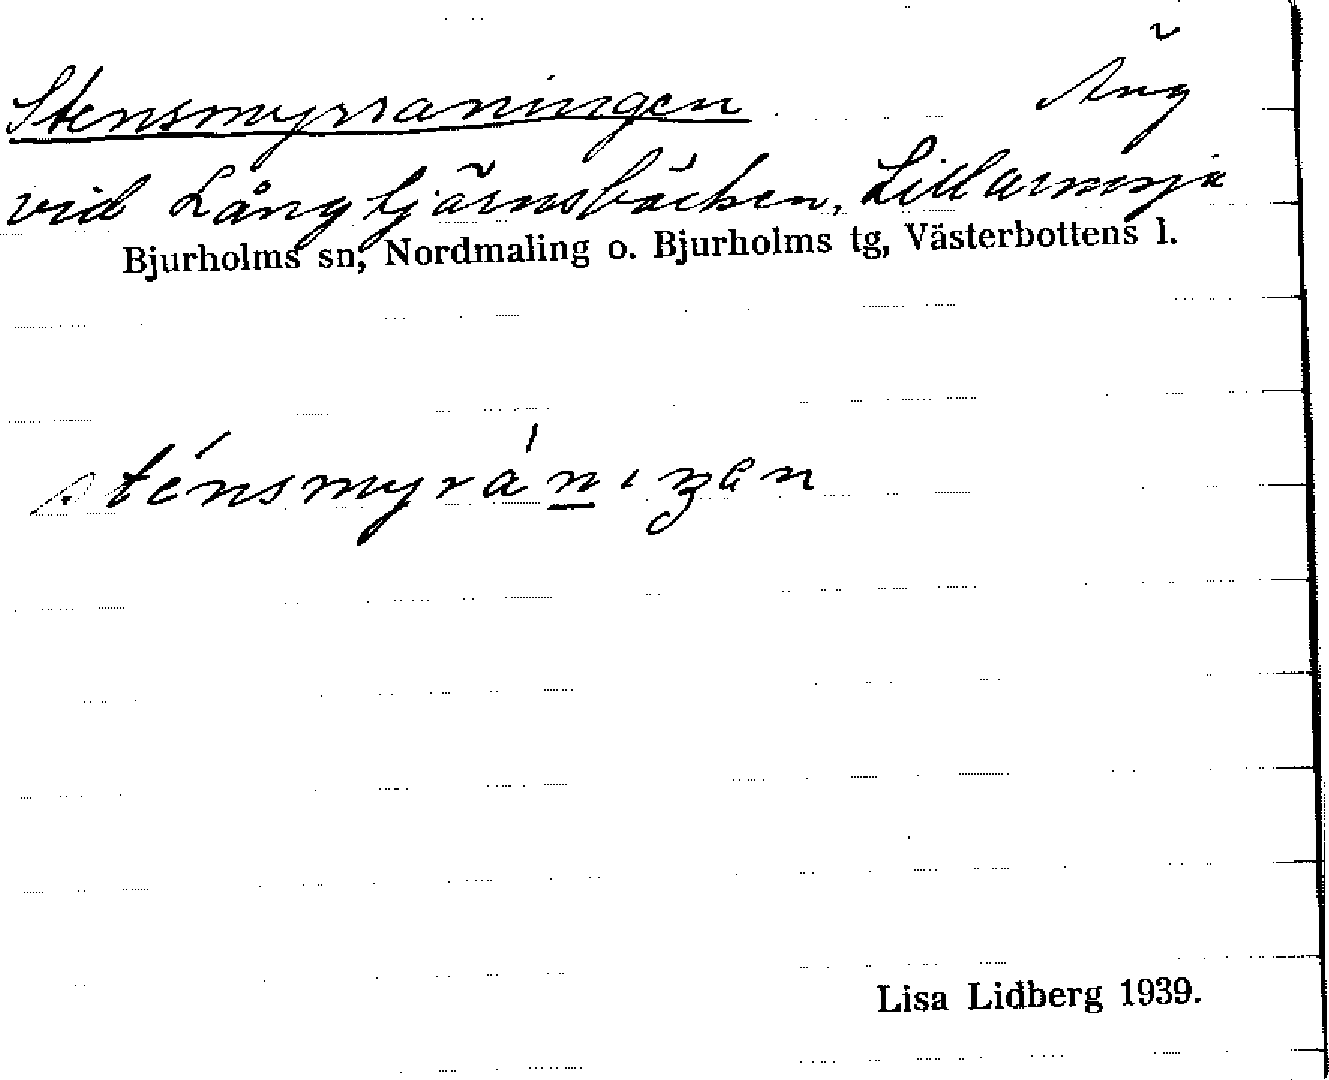 Stensmyrraningen Äng
vid Långtjärnsbäcken, Lillarmsjö
Bjurholms sn, Nordmaling o. Bjurholms tg, Västerbottens l.
Lisa Lidberg 1939.